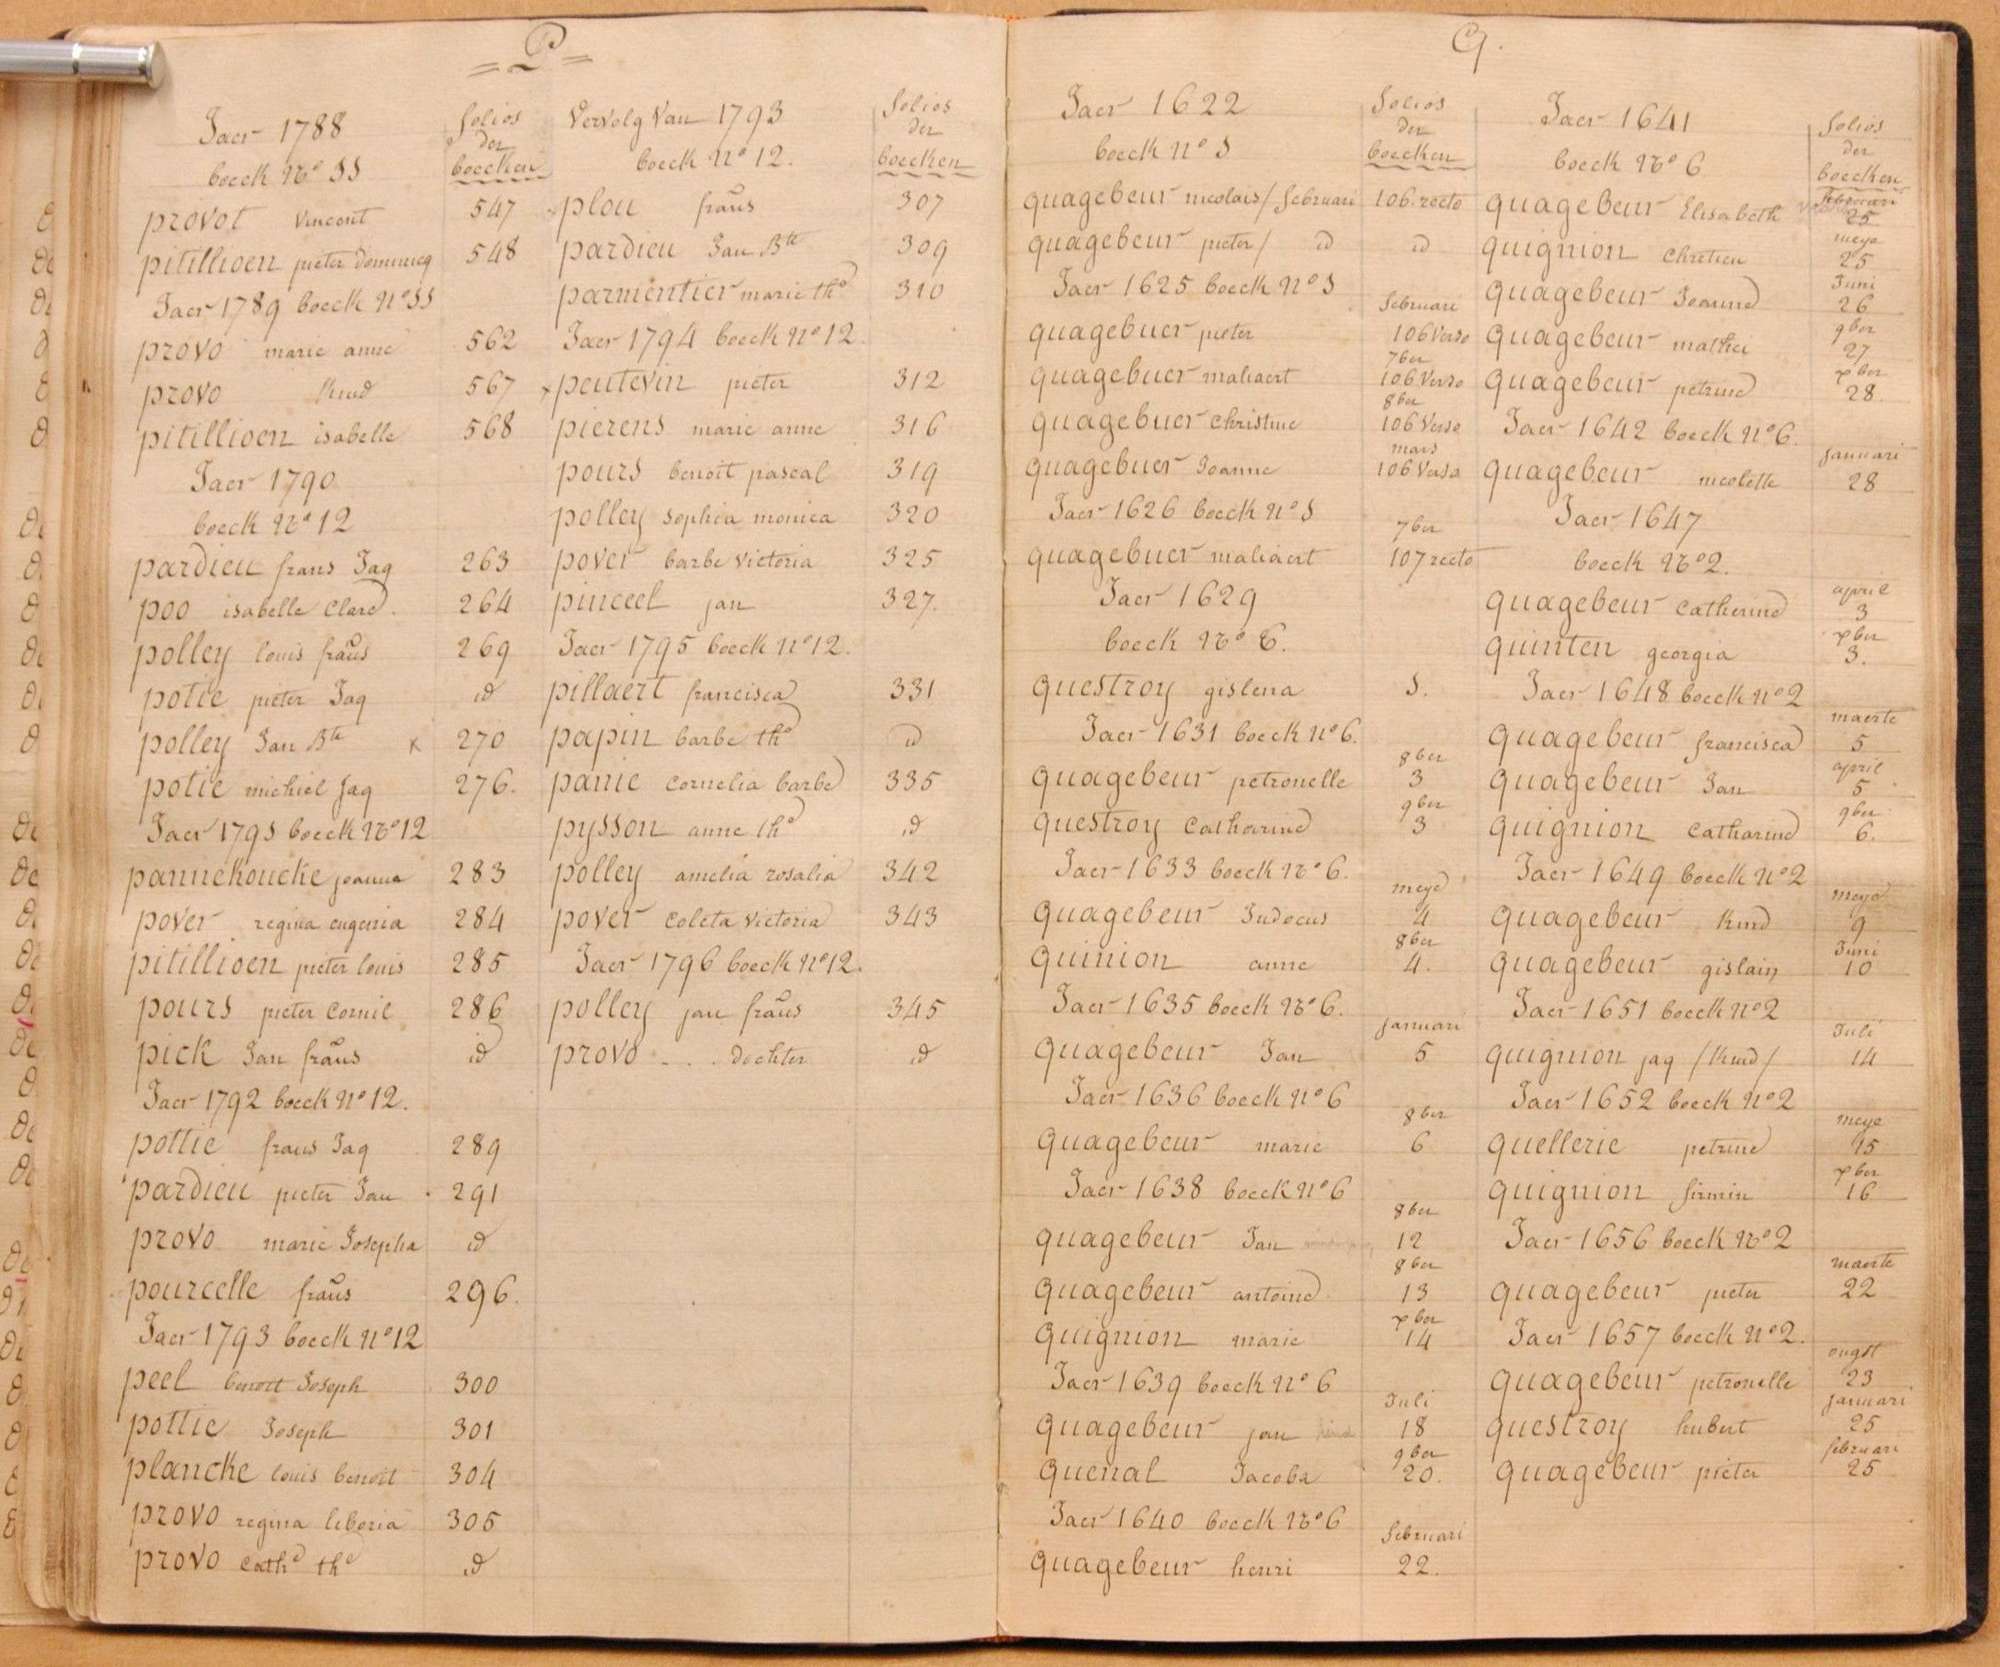 P
Jaer 1788
boeck No 11
folios
der
boecken
provot vincent 547
pitillioen pieter dominicq 548
Jaer 1789 boeck No 11
provo marie anne 562
provo kind 567
pitillioen isabelle 568
Jaer 1790
boeck No 12
pardieu frans Jaq 263
poo isabelle Clare 264
polley louis frans 269
potie pieter Jaq id
polley Jan Bte x 270
potie michiel Jaq 276.
Jaer 1791 boeck No 12
pannekoucke joanna 283
pover regina eugenia 284
pitillioen pieter louis 285
pours pieter Cornil 286
pick Jan frans id
Jaer 1792 boeck No 12.
pottie frans Jaq 289
pardieu pieter Jan 291
provo marie Josepha id
pourcelle frans 296.
Jaer 1793 boeck No 12
peel benoit Joseph 300
pottie Joseph 301
plancke louis benoit 304
provo regina liboria 305
provo Cathe the id
Vervolg Van 1793
boeck No 12.
folios
der
boecken
plou frans 307
pardieu Jan Bte 309
parmentier marie the 310
Jaer 1794 boeck No 12.
x peutevin pieter 312
pierens marie anne 316
pours benoit pascal 319
polley sophia monica 320
pover barbe victoria 325
pinceel jan 327.
Jaer 1795 boeck No 12.
pillaert francisca 331
papin barbe the id
panie Cornelia barbe 335
pysson anne the id
polley amelia rosalia 342
pover Coleta Victoria 343
Jaer 1796 boeck No 12.
polley jan frans 345
provo ... dochter id
Q.
Jaer 1622
boeck No 1
folios
der
boecken
quagebeur nicolais / februari 106 recto
quagebeur pieter / id id
Jaer 1625 boeck No 1
februari
quagebuer pieter 106 Verso
7ber
quagebuer maliaert 106 Verso
8ber
quagebuer Christine 106 Verso
mars
quagebuer Joanne 106 Verso
Jaer 1626 boeck No 1
7ber
quagebuer maliaert 107 recto
Jaer 1629
boeck No 6.
questroy gislena 1.
Jaer 1631 boeck No 6.
8ber
quagebeur petronelle 3
9ber
questroy Catharine 3
Jaer 1633 boeck No 6.
meye
quagebeur Judocus 4
8ber
quinion anne 4.
Jaer 1635 boeck No 6.
januari
quagebeur Jan 5
Jaer 1636 boeck No 6
8ber
quagebeur marie 6
Jaer 1638 boeck No 6
8ber
quagebeur Jan 12
8ber
quagebeur antoine 13
xber
quignion marie 14
Jaer 1639 boeck No 6
Juli
quagebeur jan kind 18
9ber
quenal Jacoba 20.
Jaer 1640 boeck No 6
februari
quagebeur henri 22.
Jaer 1641
boeck No 6
folios
der
boecken
februari
quagebeur Elisabeth 25
meye
quignion Chretien 25
Juni
quagebeur Joanne 26
9ber
quagebeur mathei 27
xber
quagebeur petrine 28
Jaer 1642 boeck No 6.
januari
quagebeur nicolette 28
Jaer 1647
boeck No 2.
april
quagebeur Catherine 3
xber
quinten georgia 3.
Jaer 1648 boeck No 2
maerte
quagebeur francisca 5
april
quagebeur Jan 5
9ber
quignion Catharine 6.
Jaer 1649 boeck No 2
meye
quagebeur kind 9
Juni
quagebeur gislain 10
Jaer 1651 boeck No 2
Juli
quignion jaq / kind / 14
Jaer 1652 boeck No 2
meye
quellerie petrine 15
xber
quignion firmin 16
Jaer 1656 boeck No 2
maerte
quagebeur pieter 22
Jaer 1657 boeck No 2.
ougst
quagebeur petronelle 23
januari
questroy hubert 25
februari
quagebeur pieter 25